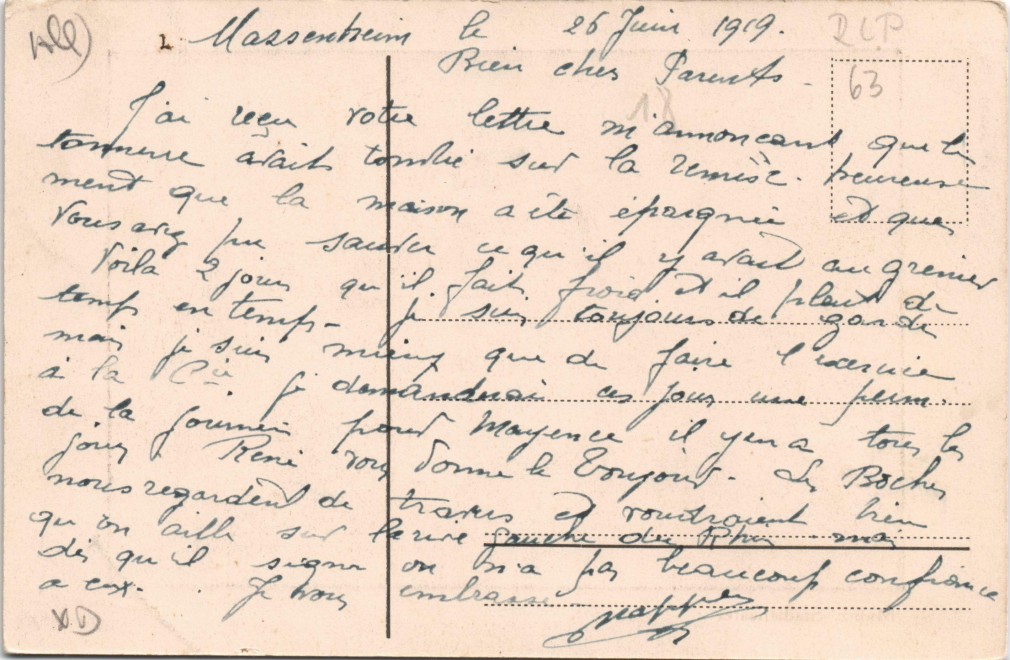 All)
RLP
63
18
Massenheim le 26 Juin 1919.
Bien chers Parents
J'ai reçu votre lettre m'annonçant que le
tonnerre avait tombé sur la remise. heureuse
ment que la maison a été épargnée et que
vous avez pu sauver ce qu'il y avait au grenier
Voila 2 jours qu'il fait froid et il pleut de
temps en temps - je suis toujours de garde
mais je suis mieux que de faire l'exercice
à la Cie je demanderai ces jours une perm.
de la journée pour Mayence il y en a tous les
jours René vous donne le bonjour. Les Boches
nous regardent de travers et voudraient bien
qu'on aille sur la rive gauche du Rhin mai
dès qu'il signe on n'a pas beaucoup confiance
a eux. Je vous embrasse
XD